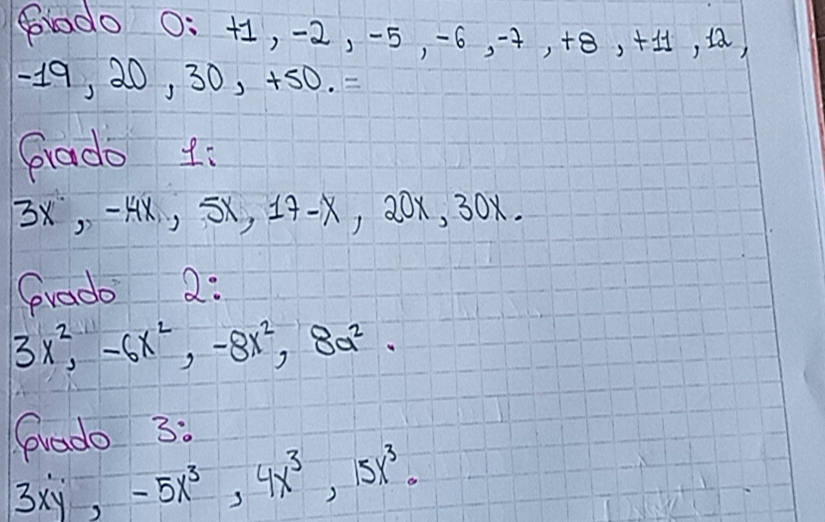 Grado 0: +1, -2, -5, -6, -7, +8, +11, 12,
-19, 20, 30, +50. =
Grado 1:
3x, -4x, 5x, 17-x, 20x, 30x.
Grado 2:
3x², -6x², -8x², 8a².
Grado 3:
3xy, -5x³, 4x³, 15x³.